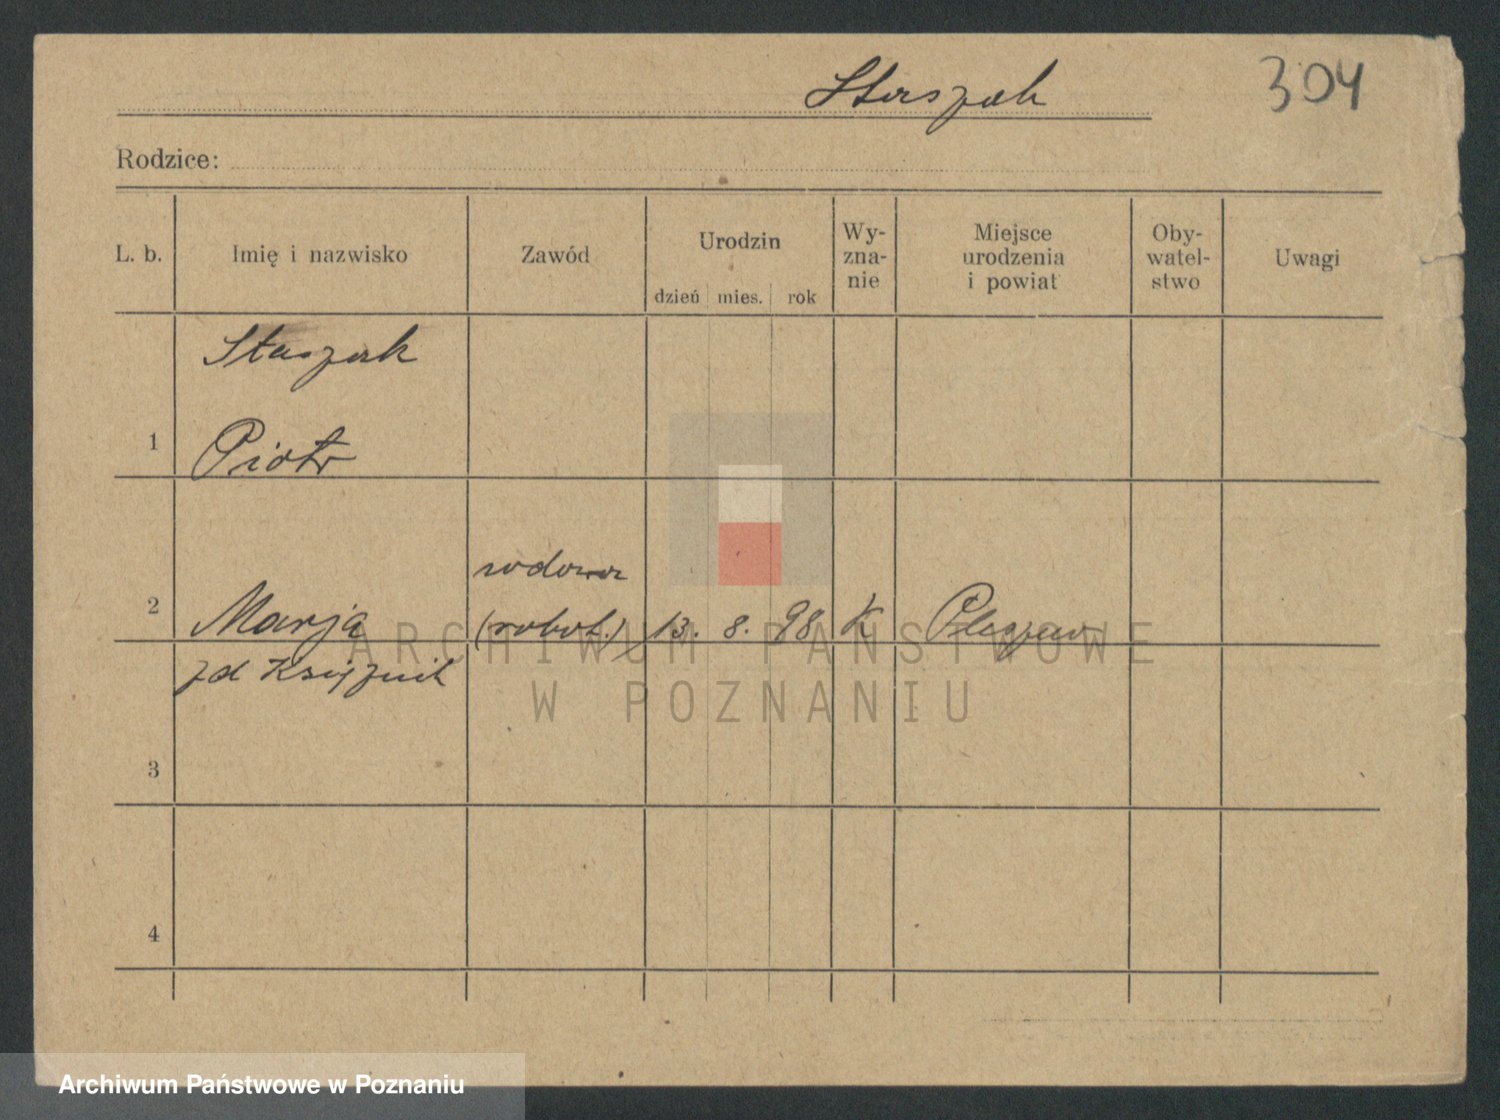 Staszak
304
Rodzice:
L. b.
Imię i nazwisko
Zawód
Urodzin
dzień mies. rok
Wy-
zna-
nie
Miejsce
urodzenia
i powiat
Oby-
watel-
stwo
Uwagi
Staszak
1 Piotr
wdowa
2 Marja (robot.) 13. 8. 98 K Pleszew
zd Księżnik
3
4
ARCHIWUM PAŃSTWOWE
W POZNANIU
Archiwum Państwowe w Poznaniu